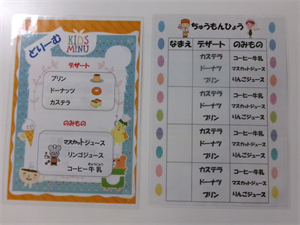 どりーむ
KIDS
MENU
デザート
プリン
ドーナッツ
カステラ
のみもの
マスカットジュース
リンゴジュース
コーヒー牛乳
ちゅうもんひょう
なまえ デザート のみもの
カステラ コーヒー牛乳
ドーナツ マスカットジュース
プリン りんごジュース
カステラ コーヒー牛乳
ドーナツ マスカットジュース
プリン りんごジュース
カステラ コーヒー牛乳
ドーナツ マスカットジュース
プリン りんごジュース
カステラ コーヒー牛乳
ドーナツ マスカットジュース
プリン りんごジュース